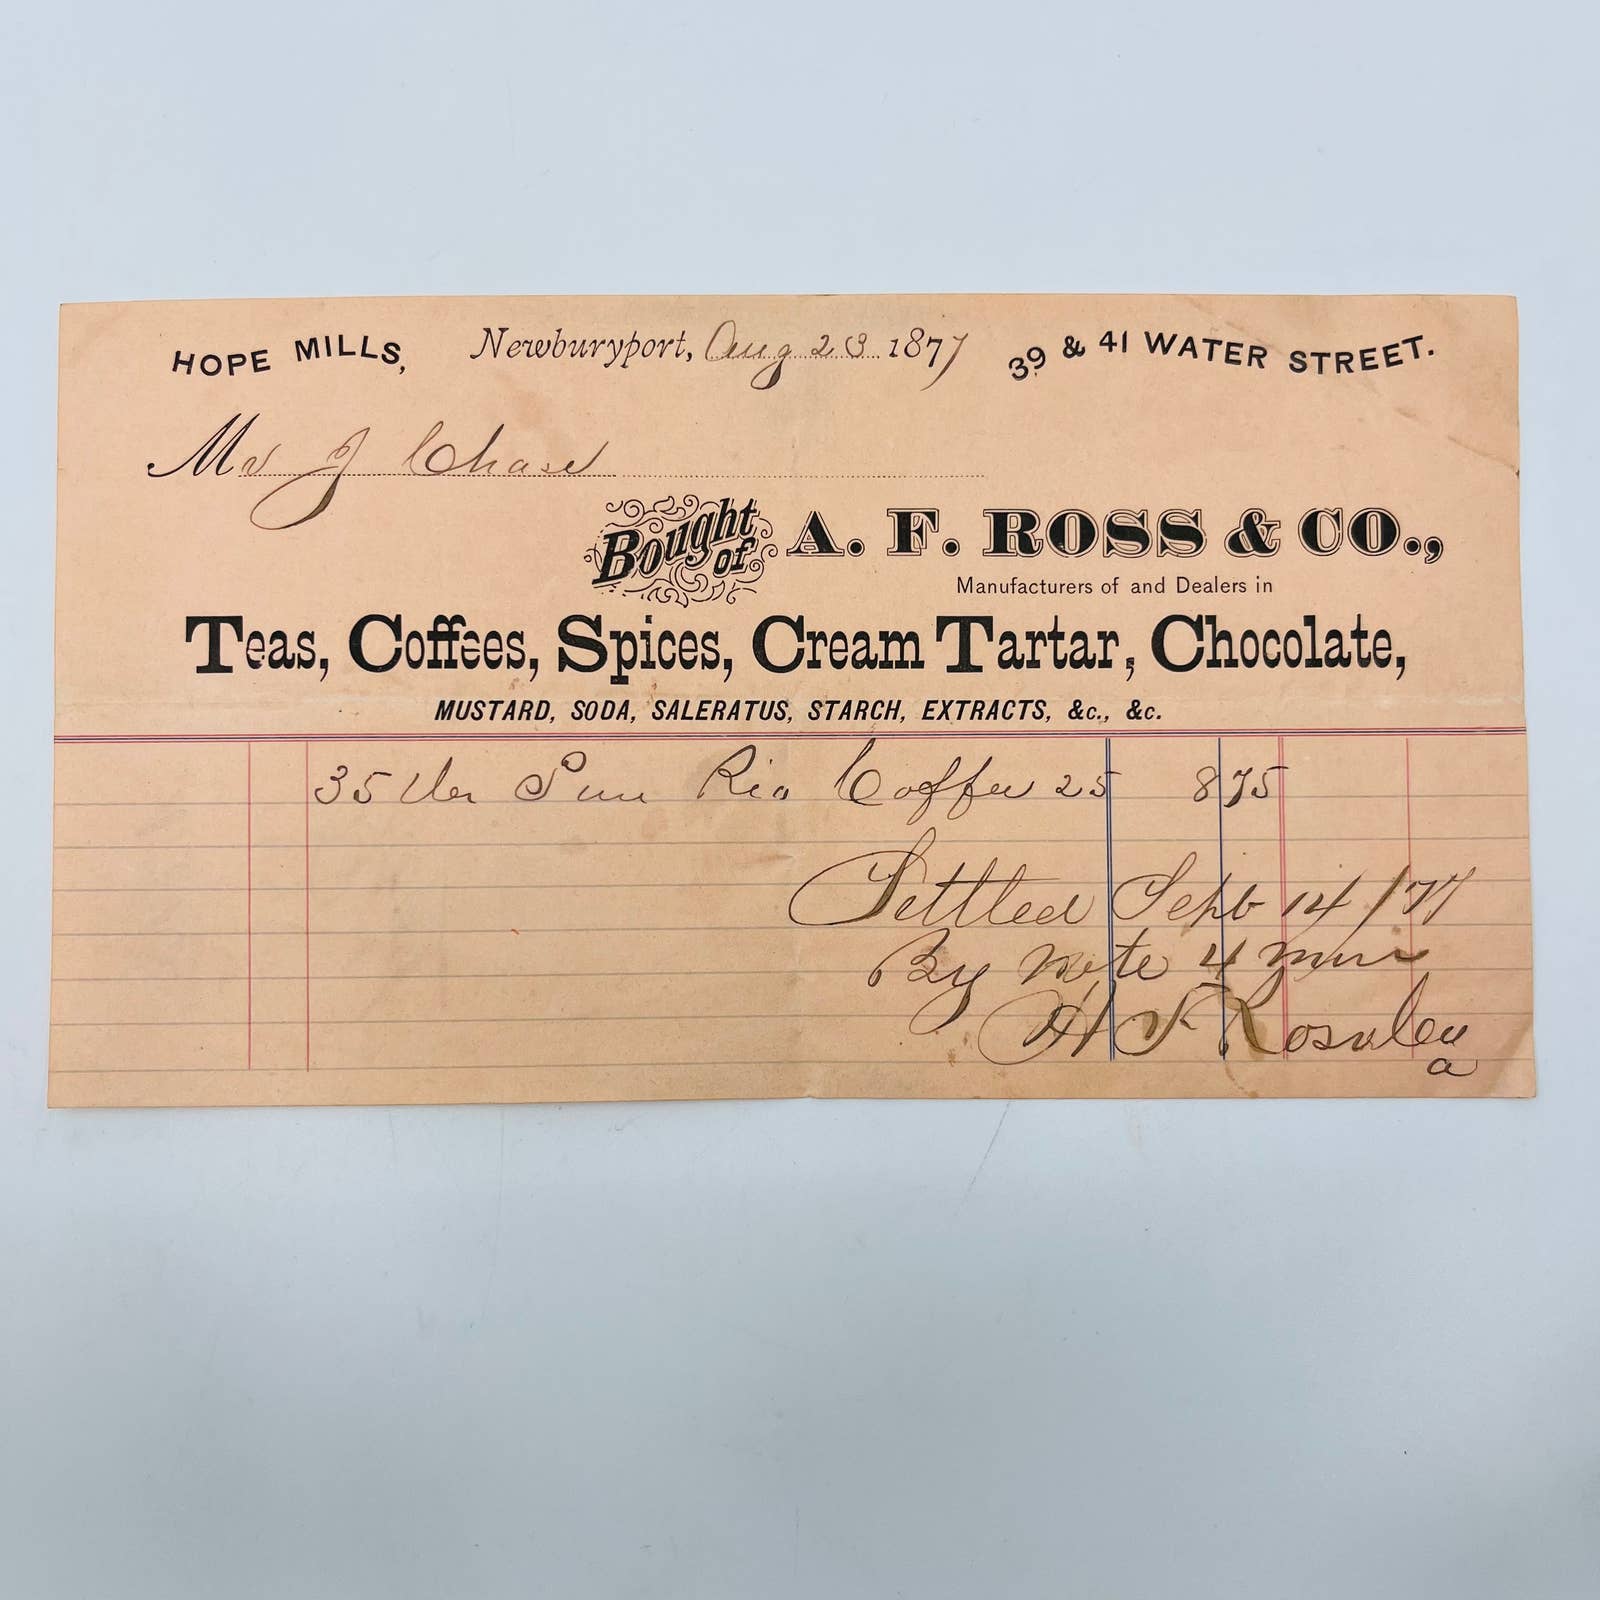 HOPE MILLS, Newburyport, Aug 23 1877 39 & 41 WATER STREET.
Mr J Chase
Bought of A. F. ROSS & CO.,
Manufacturers of and Dealers in
Teas, Coffees, Spices, Cream Tartar, Chocolate,
MUSTARD, SODA, SALERATUS, STARCH, EXTRACTS, &c., &c.
35 lbs Pure Rio Coffee 25 8 75
Settled Sept 14 /77
By Note 4 mos
A F Ross & Co